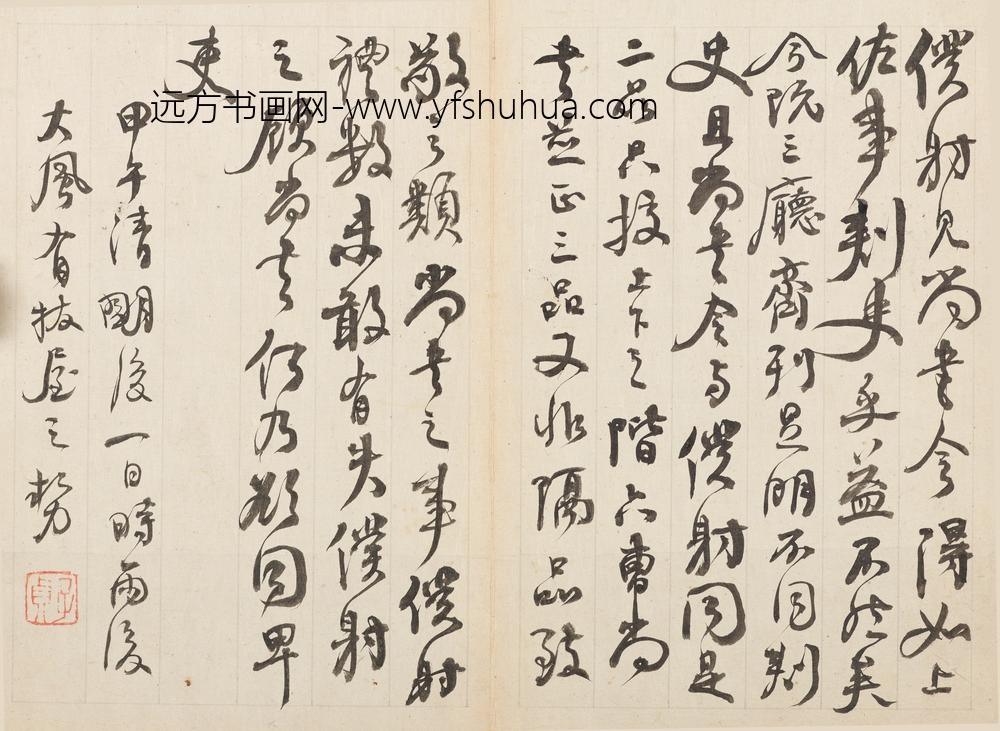 僕射見尚書令得如上
佐事刺史乎益不然矣
今既三廳齊列足明不同刺
史且尚書令與僕射同是
二品只校上下之階六曹尚
書並正三品又非隔品致
敬之類尚書之事僕射
禮數未敢有失僕射
之顧尚書何乃欲同卑
吏
甲午清明後一日時雨後
大風有拔屋之勢
子貞
远方书画网-www.yfshuhua.com